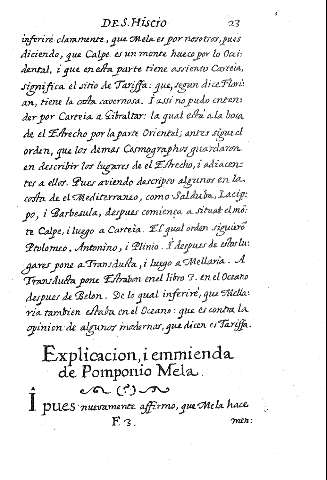 DE S. Hiscio 23
inferirè claramente, que Mela es por nosotros, pues
diciendo, que Calpe es un monte hueco por lo Occi-
dental, i que en esta parte tiene assiento Carteia,
significa el sitio de Tariffa: que, segun dice Flori-
an, tiene la costa cavernosa. I assi no pudo enten-
der por Carteia a Gibraltar: la qual està a la boca
de el Estrecho por la parte Oriental; antes sigue el
orden, que los demas Cosmographos guardaron
en describir los lugares de el Estrecho, i adiacen-
tes a ellos. Pues aviendo descripto algunos en la
costa de el Mediterraneo, como Salduba, Lacip-
po, i Barbesula, despues comiença a situar el mõ-
te Calpe, i luego a Carteia. El qual orden siguierõ
Ptolomeo, Antonino, i Plinio. I despues de estos lu-
gares pone a Transducta, i luego a Mellaria. A
Transducta pone Estrabon en el libro 3. en el Oceano
despues de Belon. De lo qual inferirè, que Mella-
ria tambien estaba en el Oceano: que es contra la
opinion de algunos modernos, que dicen es Tariffa.
Explicacion, i emmienda
de Pomponio Mela.
(?)
I pues nuevamente affirmo, que Mela hace
F. 3. men: